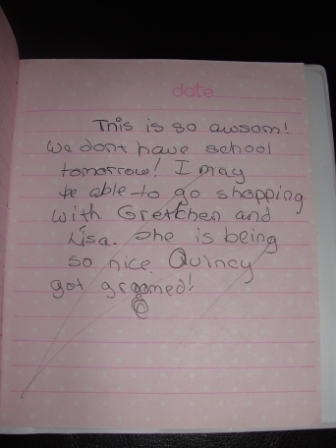 date
This is so awsom!
We dont have school
tomorrow! I may
be able to go shopping
with Gretchen and
Lisa. She is being
so nice. Quincy
got groomed!